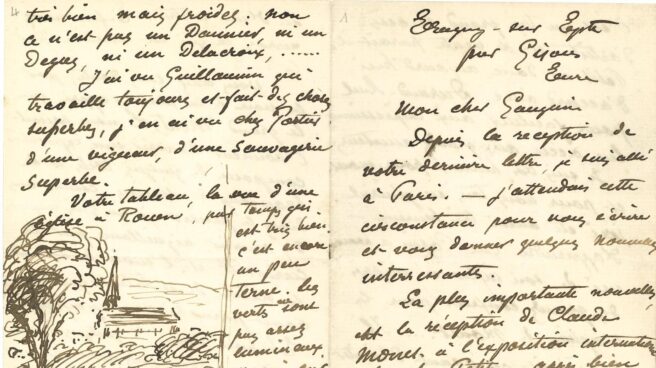 4
très bien mais froides. non
ce n'est pas un Daumier, ni un
Degas, ni un Delacroix, ......
J'ai vu Guillaumin qui
travaille toujours et fait des choses
superbes, j'en ai vu chez Portier
d'une vigueur, d'une sauvagerie
superbe.
Votre tableau, la vue d'une
église à Rouen, par temps gris
est très bien
c'est encore
un peu
terne. les
verts sont
pas assez
lumineux.
1
Eragny - sur Epte
par Gisors
Eure
Mon cher Gauguin
Depuis la réception de
votre dernière lettre, je suis allé
à Paris. — j'attendais cette
circonstance pour vous écrire
et vous donner quelques nouvelles
interressantes.
La plus importante nouvelle,
est la réception de Claude
Monet à l'exposition internationale
Petit, après bien